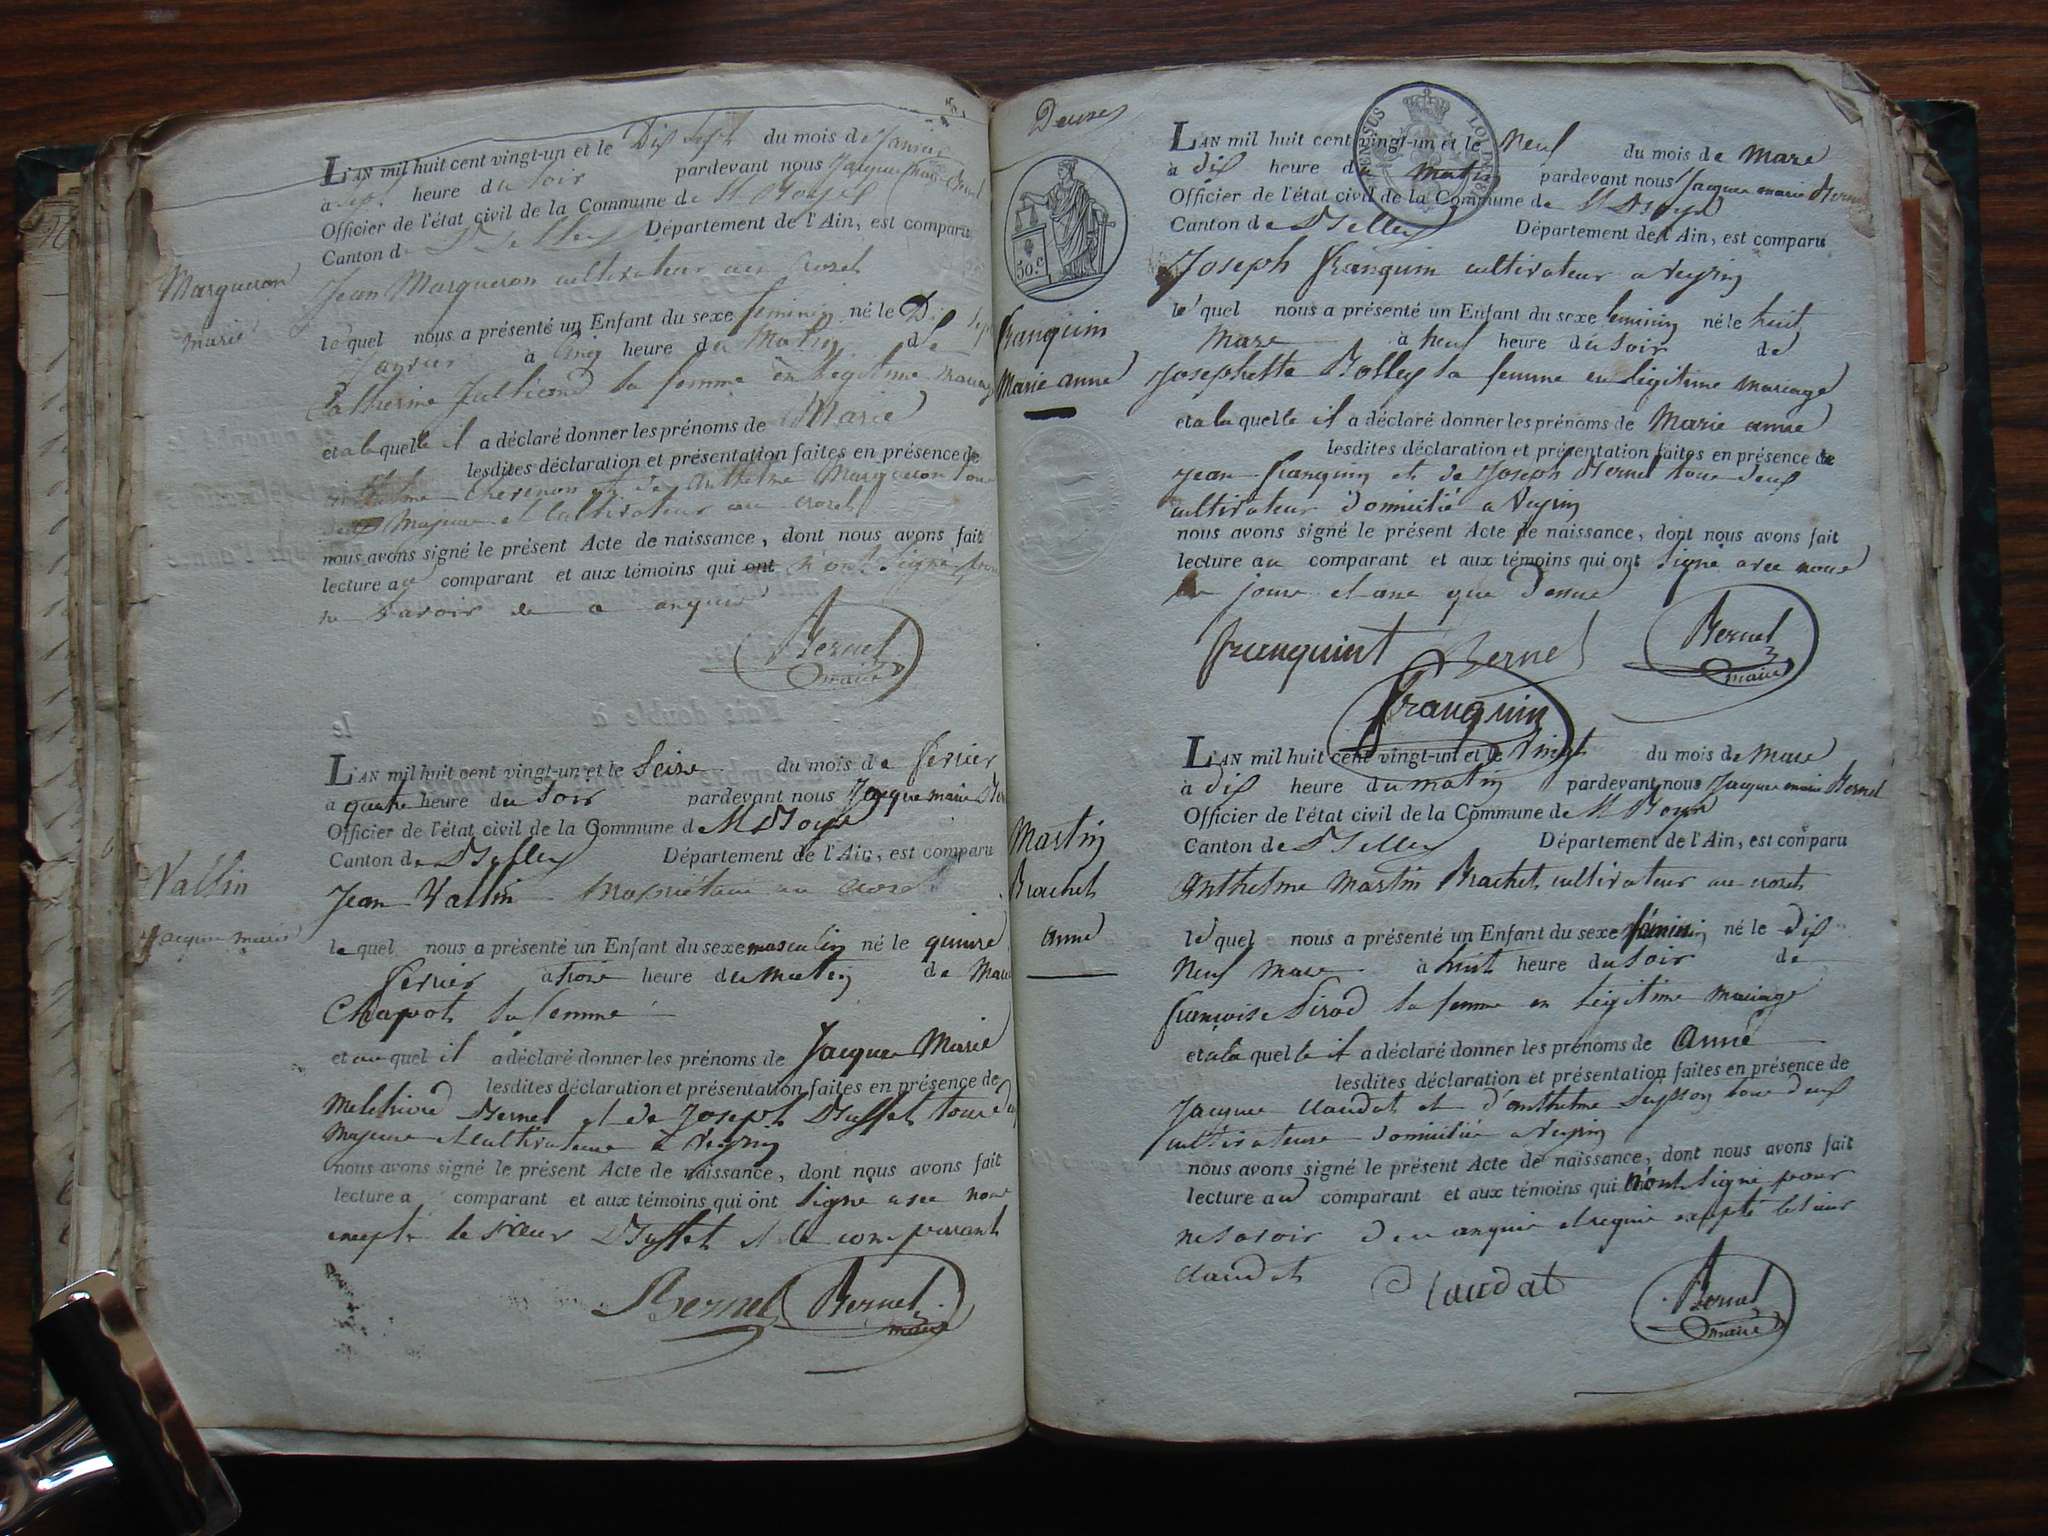 Margueron
marie
L'AN mil huit cent vingt-un et le Dix Sept du mois de Janvier
à Sept heure du Soir pardevant nous Jacque marie Bernel
Officier de l'état civil de la Commune de St Boys
Canton de Belley Département de l'Ain, est comparu
Jean Margueron cultivateur au Crozet
le quel nous a présenté un Enfant du sexe feminin né le Dix Sept
Janvier à Cinq heure du Matin de
Catherine Jullierd sa femme en legitime mariage
et a la quelle il a déclaré donner les prénoms de Marie
lesdites déclaration et présentation faites en présence de
Anthelme et de Anthelme Margueron tous
deux Majeur et Cultivateur au crozet
nous avons signé le présent Acte de naissance, dont nous avons fait
lecture au comparant et aux témoins qui ont n'ont Signé pour
ne Savoir de ce enquis
Bernel
maire
Vallin
Jacque marie
L'AN mil huit cent vingt-un et le Seize du mois de fevrier
à quatre heure du Soir pardevant nous Jacque marie Ber
Officier de l'état civil de la Commune de St Boys
Canton de Belley Département de l'Ain, est comparu
Jean Vallin Propriétaire au Crozet
le quel nous a présenté un Enfant du sexe masculin né le quinze
fevrier à troix heure du Matin de Marie
Chapot sa femme
et au quel il a déclaré donner les prénoms de Jacque Marie
lesdites déclaration et présentation faites en présence de
Melchiord Bernel et de Joseph Buffet tous deux
Majeur et Cultivateur à Veyrin
nous avons signé le présent Acte de naissance, dont nous avons fait
lecture a comparant et aux témoins qui ont Signé avec nous
excepté le sieur Buffet et le comparant
Bernel Bernel
maire
Deuxe
50.c
Franquin
Marie anne
L'AN mil huit cent vingt-un et le Neuf du mois de Mars
à dix heure du Matin pardevant nous Jacque marie Bernel
Officier de l'état civil de la Commune de St Boys
Canton de Belley Département de l'Ain, est comparu
Joseph franquin cultivateur a Veyrin
le quel nous a présenté un Enfant du sexe feminin né le huit
Mars à neuf heure du Soir de
Josephette Bolley sa femme en legitime mariage
et a la quelle il a déclaré donner les prénoms de Marie anne
lesdites déclaration et présentation faites en présence de
Jean franquin et de Joseph Bernel tous deux
cultivateur domicilié a Veyrin
nous avons signé le présent Acte de naissance, dont nous avons fait
lecture au comparant et aux témoins qui ont Signé avec nous
les jours et ans que dessus
franquint Bernel Bernel
maire
franquin
Martin
Brachet
anne
L'AN mil huit cent vingt-un et le Vingt du mois de Mars
à dix heure du matin pardevant nous Jacque marie Bernel
Officier de l'état civil de la Commune de St Boys
Canton de Belley Département de l'Ain, est comparu
Anthelme Martin Brachet cultivateur au crozet
le quel nous a présenté un Enfant du sexe féminin né le dix
Neuf Mars à huit heure du Soir de
françoise Sirod sa femme en legitime mariage
et a la quelle il a déclaré donner les prénoms de Anne
lesdites déclaration et présentation faites en présence de
Jacque Claudat et d'anthelme tous deux
cultivateurs domicilié a Veyrin
nous avons signé le présent Acte de naissance, dont nous avons fait
lecture au comparant et aux témoins qui n'ont Signé pour
ne Savoir de ce enquis et requis excepté le sieur
Claudat
Claudat
Bernel
maire